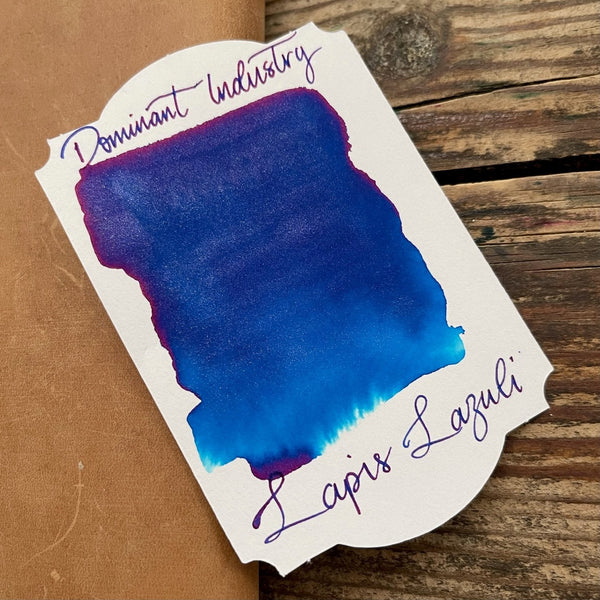 Dominant Industry
Lapis Lazuli